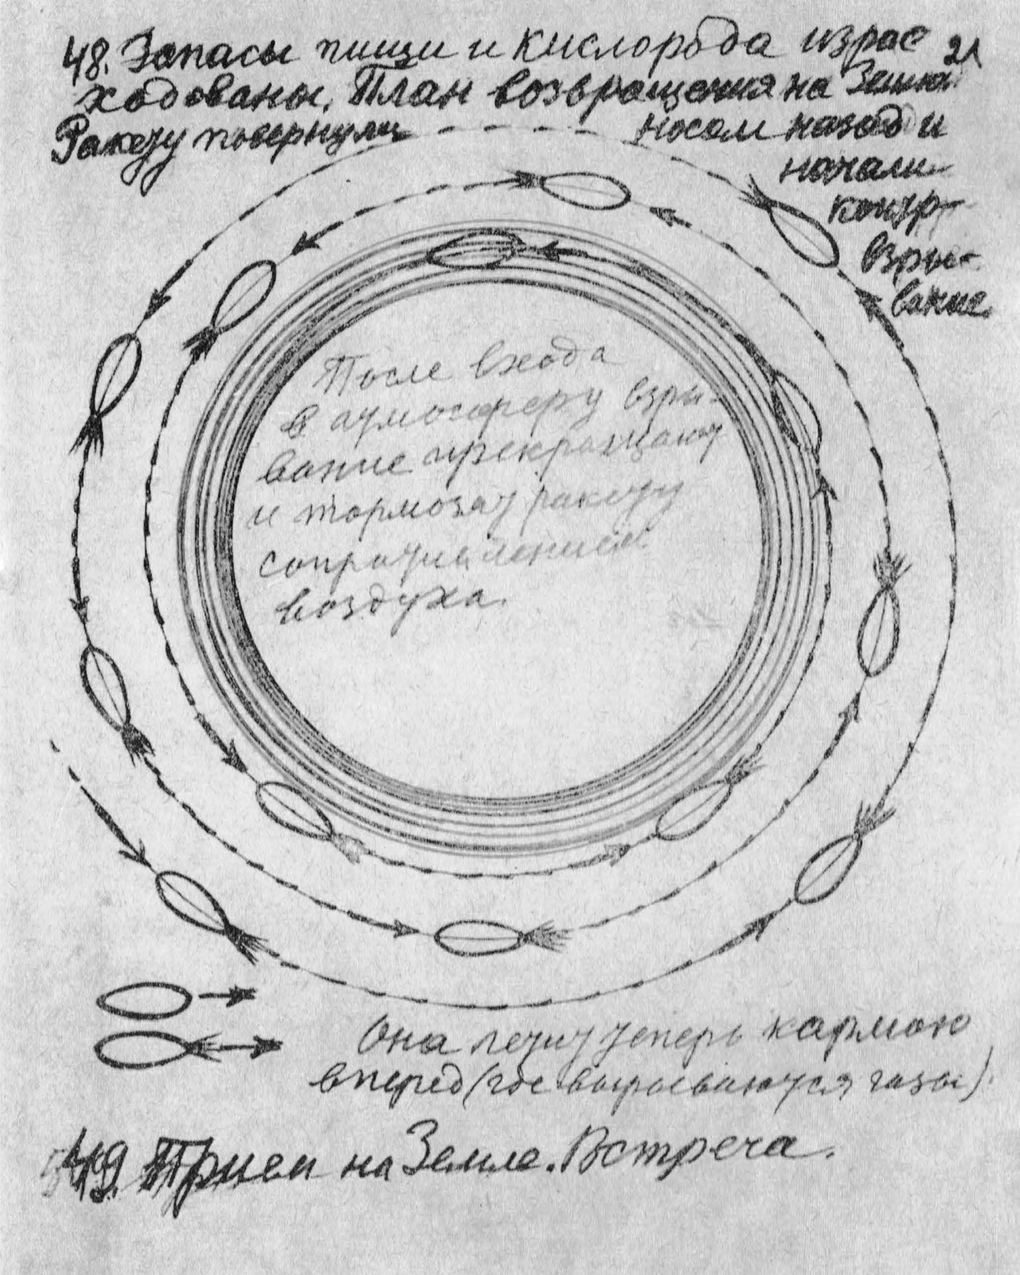 21
48. Запасы пищи и кислорода израс
ходованы. План возвращения на Землю
Ракету повернули носом назад и
начали
контр-
взры-
вание.
После входа
в атмосферу взры-
вание прекращают
и тормозят ракету
сопротивлением
воздуха.
Она летит теперь кармою
вперед (где вырываются газы).
49. Прием на Земле. Встреча.